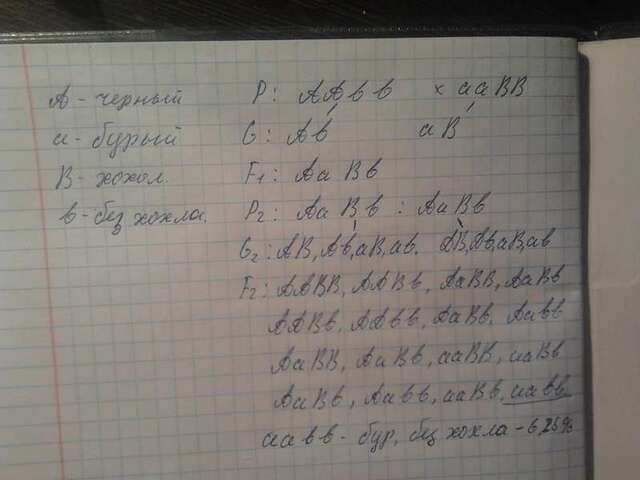 A - черный P: AAвв × ааВВ
а - бурый G: Ав аВ
В - хохол. F1: АаВв
в - без хохла. P2: АаВв : АаВв
G2: АВ, Ав, аВ, ав. АВ, Ав, аВ, ав
F2: ААВВ, ААВв, АаВВ, АаВв
ААВв, ААвв, АаВв, Аавв
АаВВ, АаВв, ааВВ, ааВв
АаВв, Аавв, ааВв, аавв
аавв - бур, без хохла - 6,25%